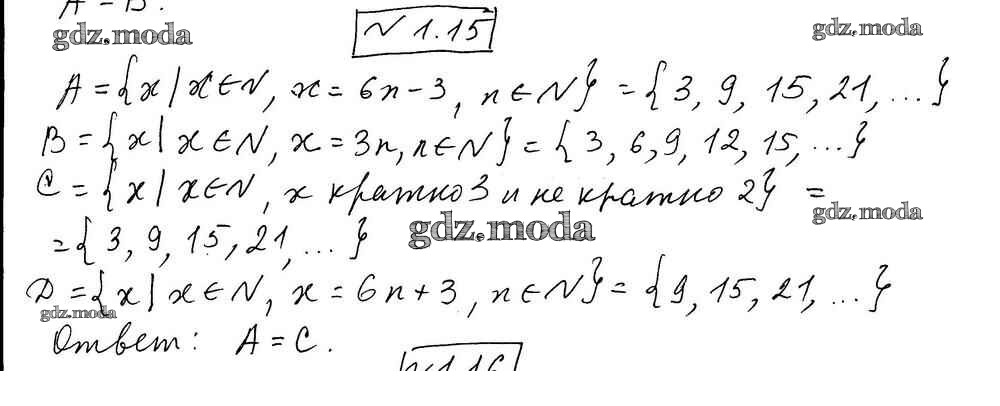 A = B.
gdz.moda
№ 1.15
gdz.moda
A = {x | x ∈ N, x = 6n - 3, n ∈ N} = {3, 9, 15, 21, ...}
B = {x | x ∈ N, x = 3n, n ∈ N} = {3, 6, 9, 12, 15, ...}
C = {x | x ∈ N, x кратно 3 и не кратно 2} =
gdz.moda
= {3, 9, 15, 21, ...}
gdz.moda
D = {x | x ∈ N, x = 6n + 3, n ∈ N} = {9, 15, 21, ...}
gdz.moda
Ответ: A = C.
№ 1.16